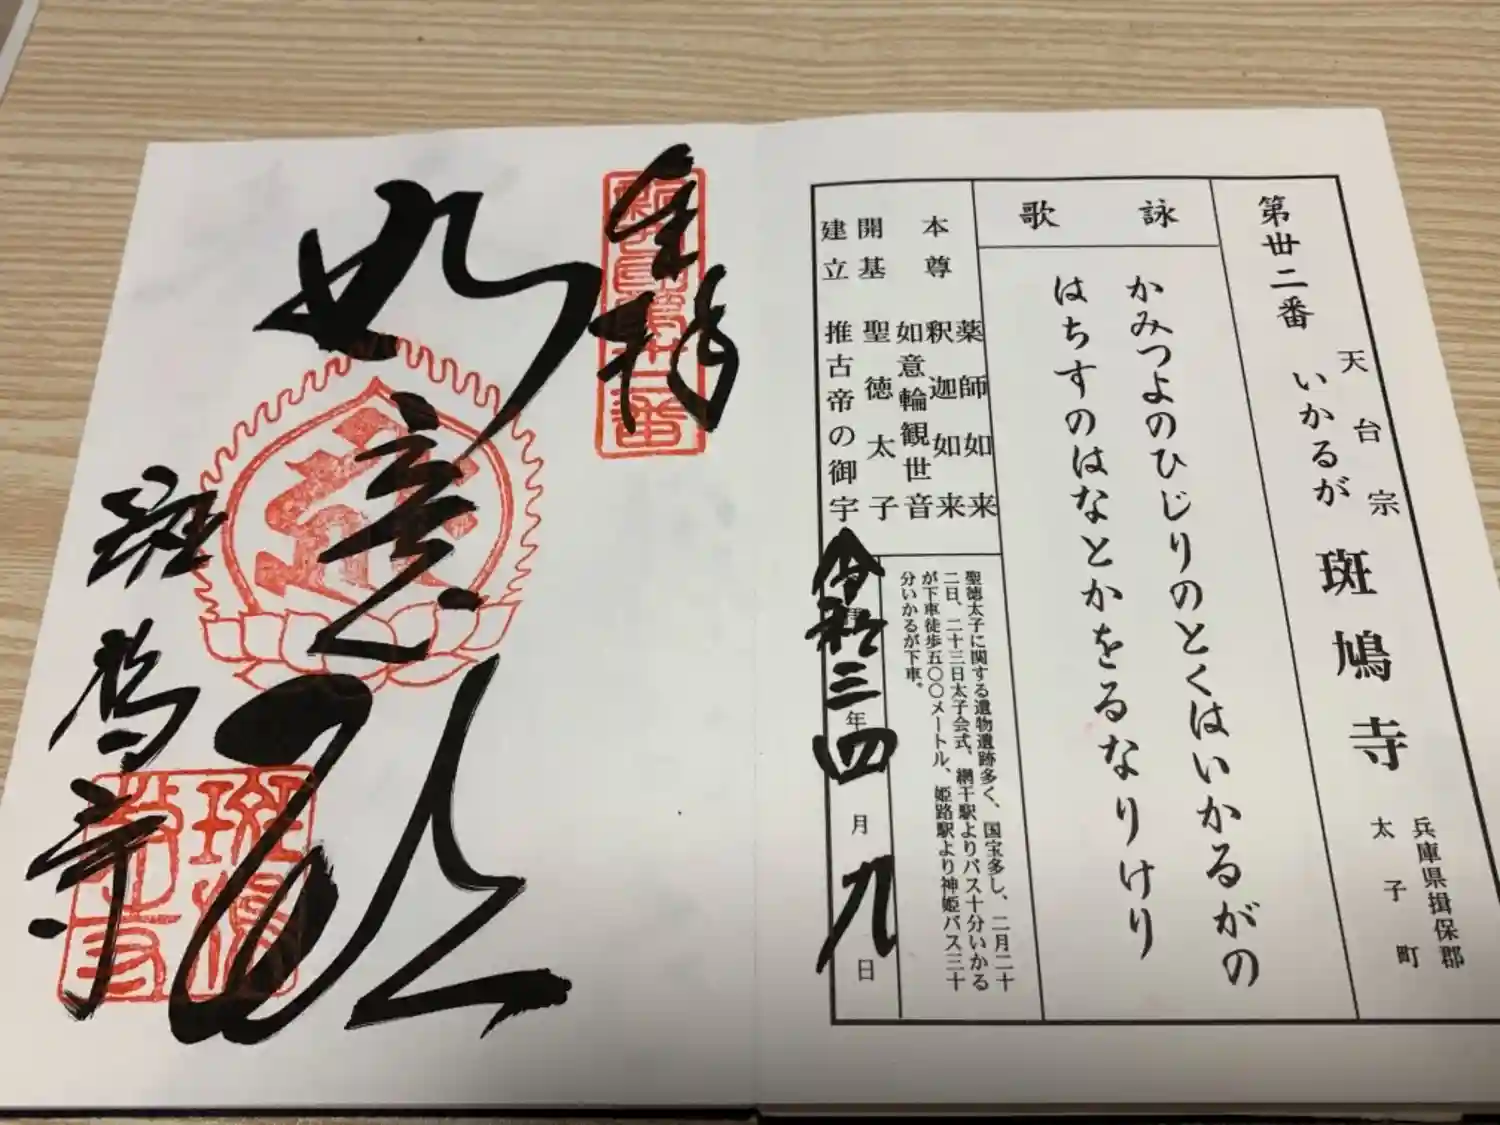 第丗二番
天台宗
いかるが
斑鳩寺
兵庫県揖保郡
太子町
詠歌
かみつよのひじりのとくはいかるがの
はちすのはなとかをるなりけり
本尊
薬師如来
釈迦如来
如意輪観世音
開基
聖徳太子
建立
推古帝の御宇
聖徳太子に関する遺物遺跡多く、国宝多し、二月二十
二日、二十三日太子会式、網干駅よりバス十分いかる
が下車徒歩五〇〇メートル、姫路駅より神姫バス三十
分いかるが下車。
令和三年四月九日
奉拝
新西国第卅二番
如意殿
斑鳩寺
斑鳩